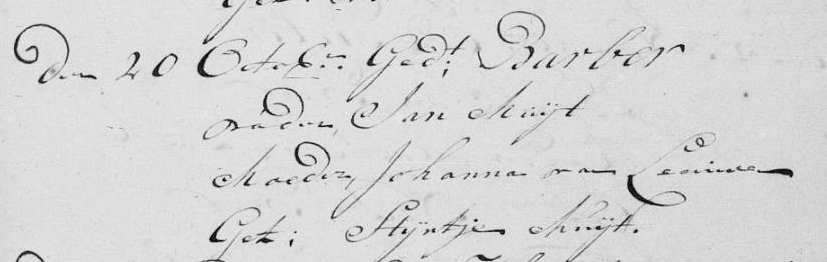 Den 20 Octobr: Gedt: Barber
vader, Jan Muijt
Moeder, Johanna van Leeuwen
Get: Styntje Muijt.